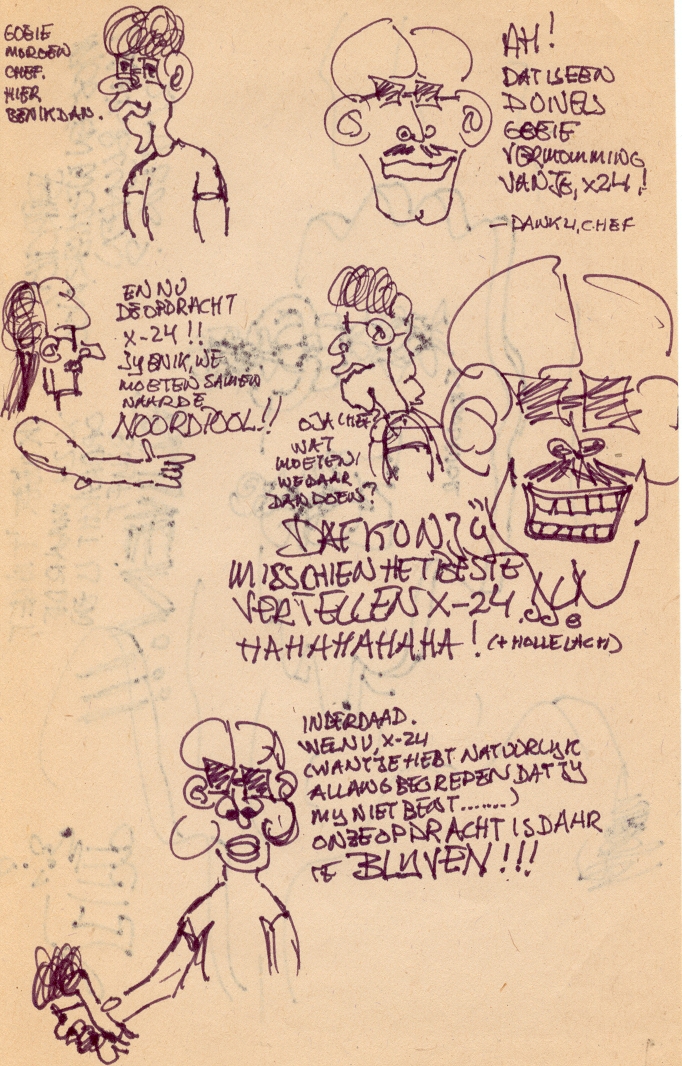 GOEIE
MORGEN
CHEF.
HIER
BENIKDAN.
AH!
DAT IS EEN
GOEIE
VERMOMMING
VAN JE, X24!
— DANK U, CHEF
EN NU
DE OPDRACHT
X-24!!
JY EN IK, WE
MOETEN SAMEN
NAAR DE
NOORDPOOL!!
OJA CHEF?
WAT
MOETEN
WE DAAR
DAN DOEN?
DAT KON JY
MISSCHIEN HET BESTE
VERTELLEN X-24...
HAHAHAHAHA! (+ HOLLE LACH)
INDERDAAD.
WELNU, X-24
(WANT JE HEBT NATUURLYK
ALLANG BEGREPEN DAT JY
MY NIET BENT.......)
ONZE OPDRACHT IS DAAR
TE BLYVEN!!!